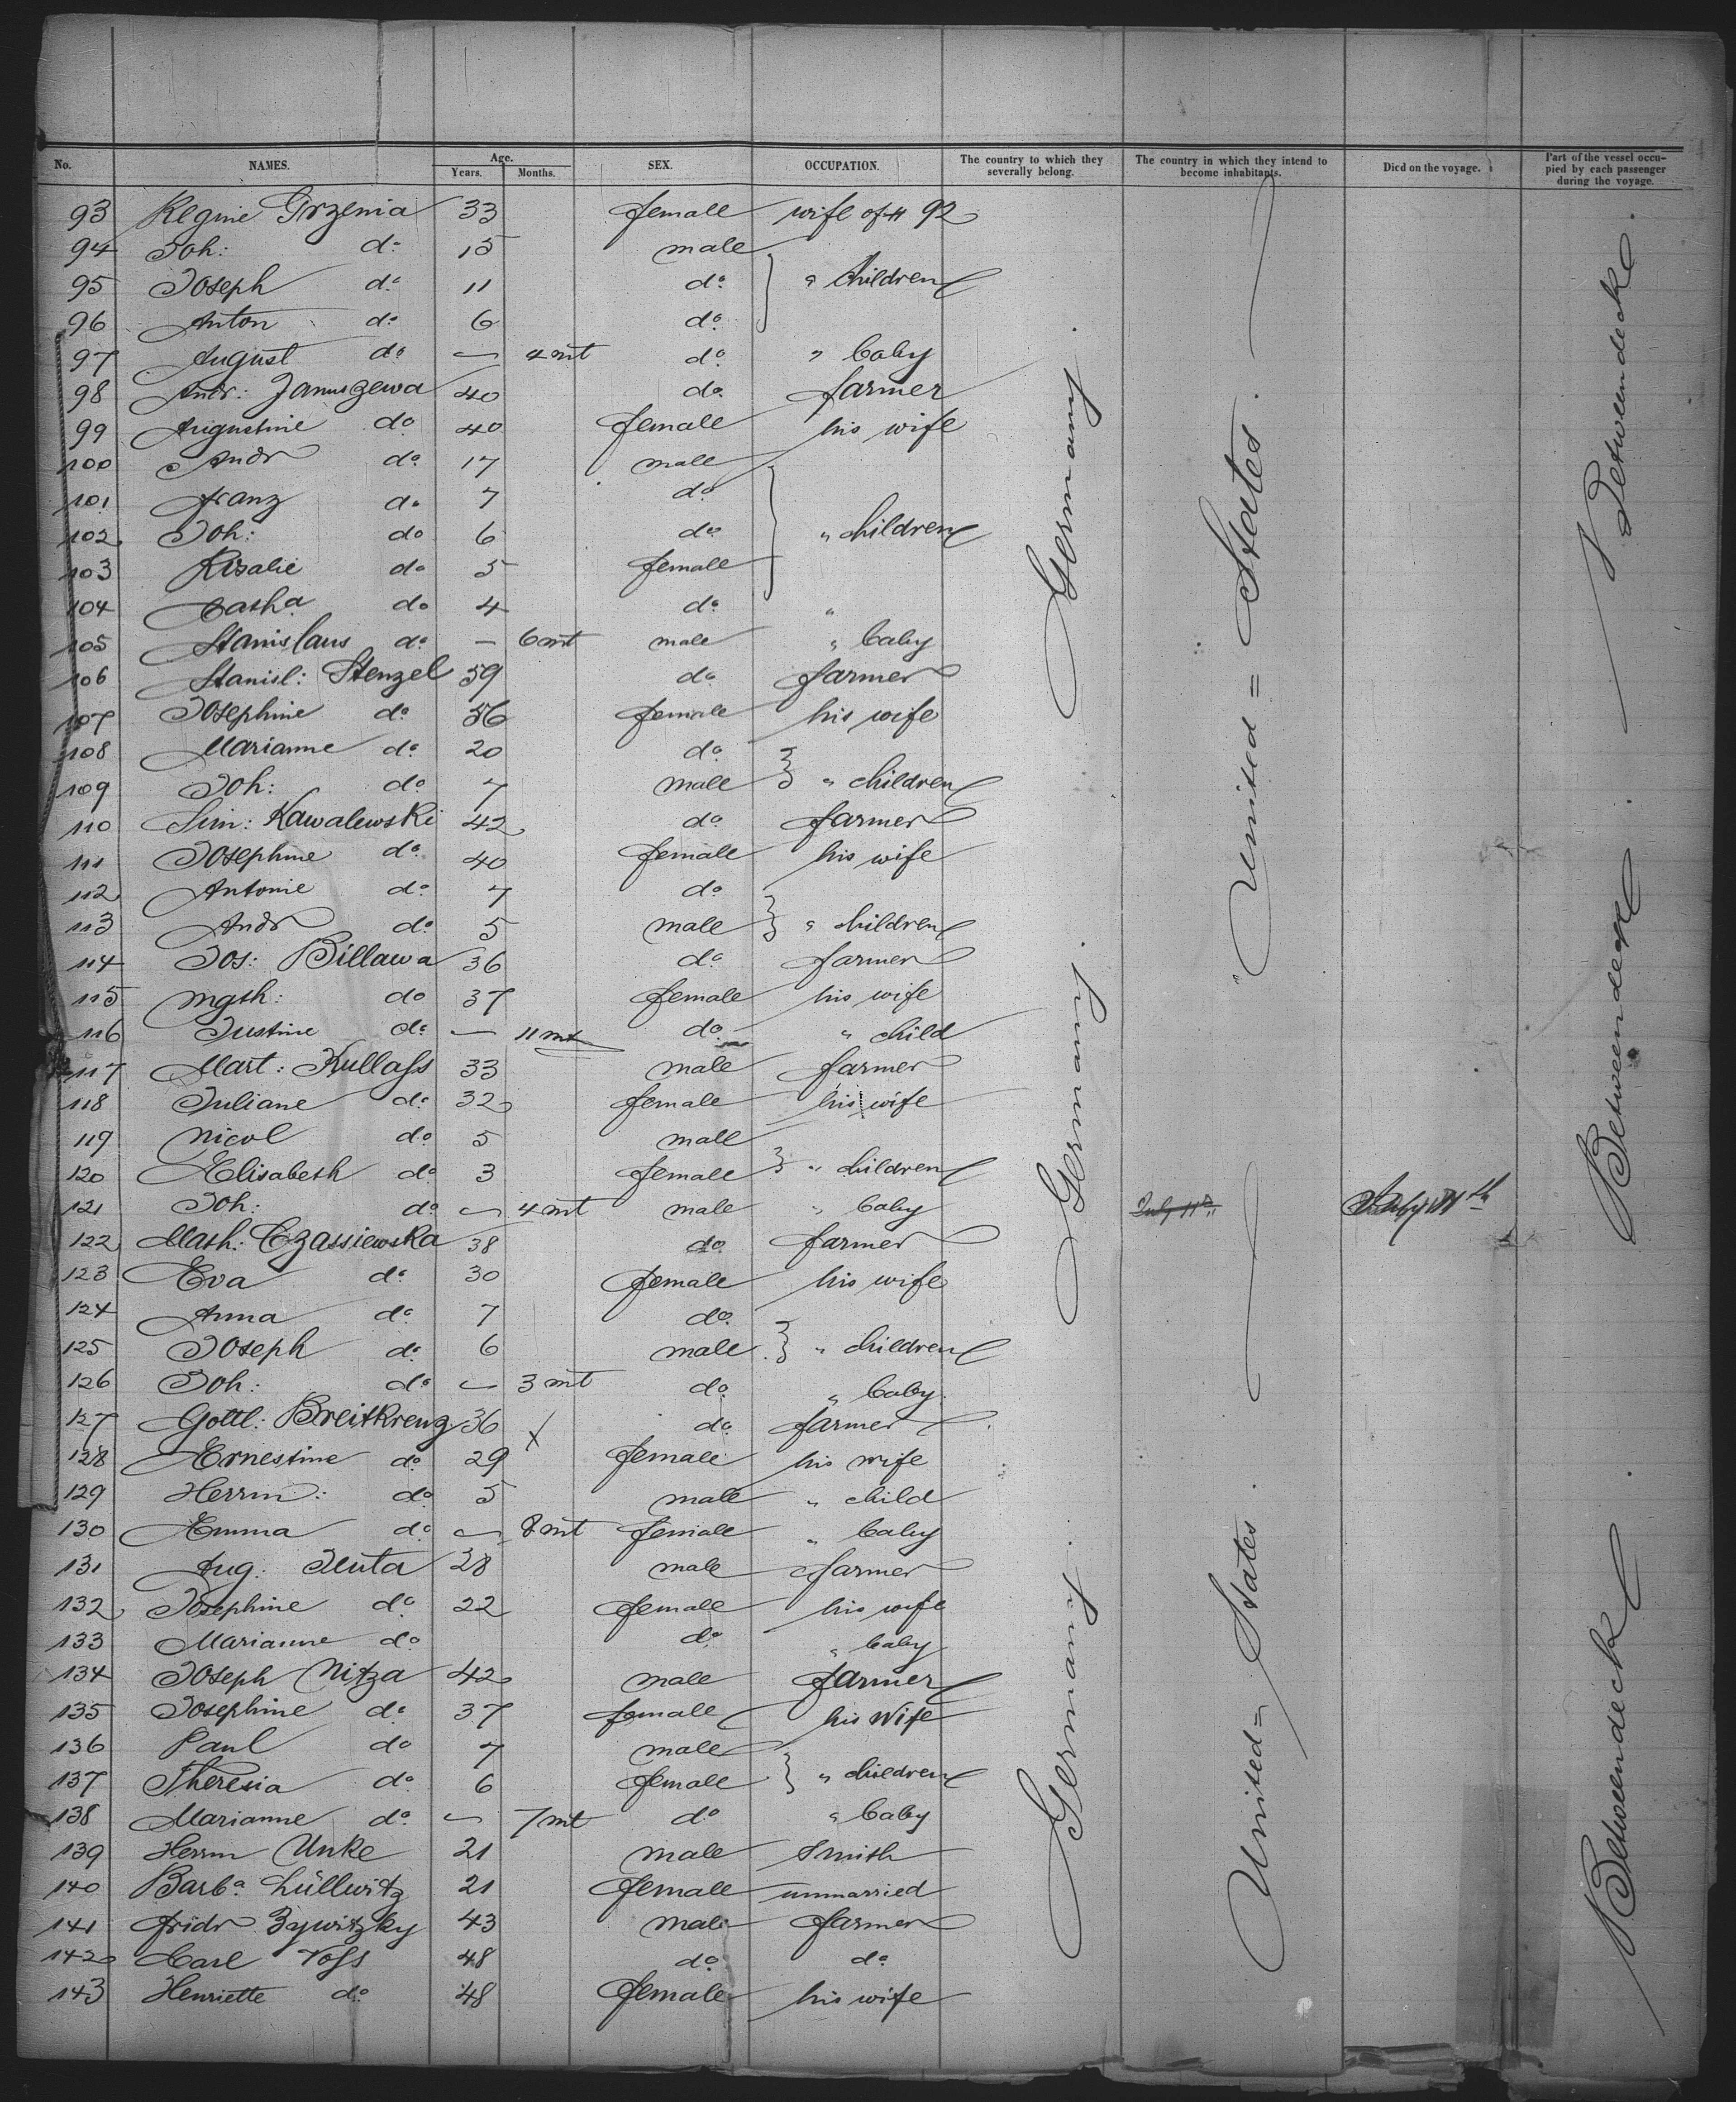 No. NAMES. Age. Years. Months. SEX. OCCUPATION. The country to which they severally belong. The country in which they intend to become inhabitants. Died on the voyage. Part of the vessel occupied by each passenger during the voyage.
93 Regine Grzenia 33 female wife of # 92
94 Joh: do 15 male
95 Joseph do 11 do " children
96 Anton do 6 do
97 August do — 4 mt do " baby
98 Andr: Januszewa 40 do farmer
99 Augustine do 40 female his wife
100 Andr do 17 male
101 Franz do 7 do
102 Joh: do 6 do " children
103 Rosalie do 5 female
104 Casha do 4 do "
105 Stanislaus do — 6 mt male " baby
106 Stanisl: Stenzel 59 do farmer
107 Josephine do 56 female his wife
108 Marianne do 20 do
109 Joh: do 7 male " children
110 Sim: Kawalewski 42 do farmer
111 Josephine do 40 female his wife
112 Antonie do 7 do
113 Andr do 5 male " children
114 Jos: Billawa 36 do farmer
115 Mgth: do 37 female his wife
116 Justine do — 11 mt do " child
117 Mart: Kullass 33 male farmer
118 Juliane do 32 female his wife
119 Nicol do 5 male
120 Elisabeth do 3 female " children
121 Joh: do — 4 mt male " baby July 11th
122 Math: Czassiewska 38 do farmer
123 Eva do 30 female his wife
124 Anna do 7 do
125 Joseph do 6 male " children
126 Joh: do — 3 mt do " baby
127 Gottl: Breitkreuz 36 x do farmer
128 Ernestine do 29 female his wife
129 Herrm: do 5 male " child
130 Emma do — 8 mt female " baby
131 Aug: 28 male farmer
132 Josephine do 22 female his wife
133 Marianne do do " baby
134 Joseph Nitza 42 male farmer
135 Josephine do 37 female his wife
136 Paul do 7 male
137 Theresia do 6 female " children
138 Marianne do — 7 mt do " baby
139 Herrm Unke 21 male Smith
140 Barba Lüllwitz 21 female unmarried
141 Fridr Zywitzky 43 male farmer
142 Carl Voss 48 do do
143 Henriette do 48 female his wife
Germany
Germany
Germany
United = States
United = States
Betweendeck
Betweendeck
Betweendeck